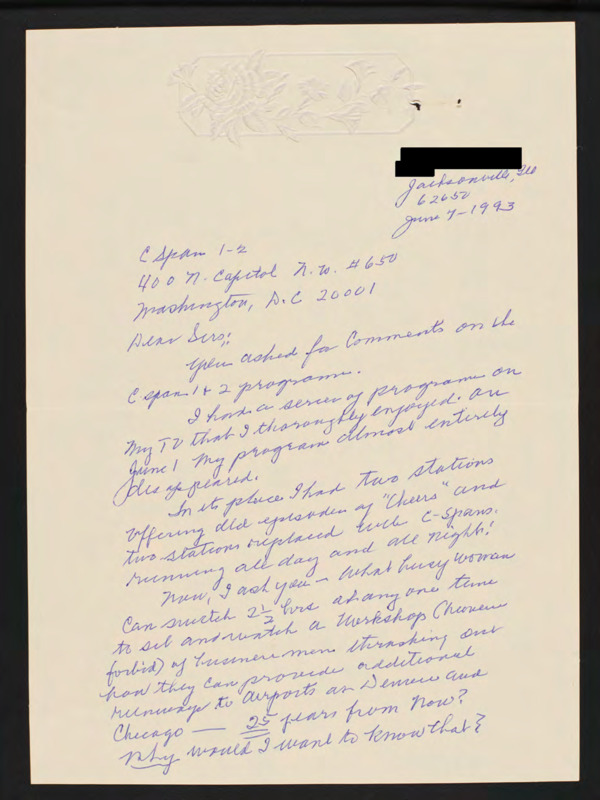 Jacksonville, Ill
62650
June 7-1993
C Span 1-2
400 N. Capitol N.W. #650
Washington, D.C 20001
Dear Sirs:
You asked for Comments on the
C span 1 & 2 programs.
I had a series of programs on
my TV that I thoroughly enjoyed. On
June 1 my program almost entirely
disappeared.
In its place I had two stations
offering old episodes of "Cheers" and
two stations replaced with C-Spans.
running all day and all night!
Now, I ask you - What busy woman
Can 2 1/2 hrs at any one time
to sit and watch a Workshop (heaven
forbid) of business men thrashing out
how they can provide additional
runways to Airports as Denver and
Chicago — 25 years from now?
Why would I want to know that?